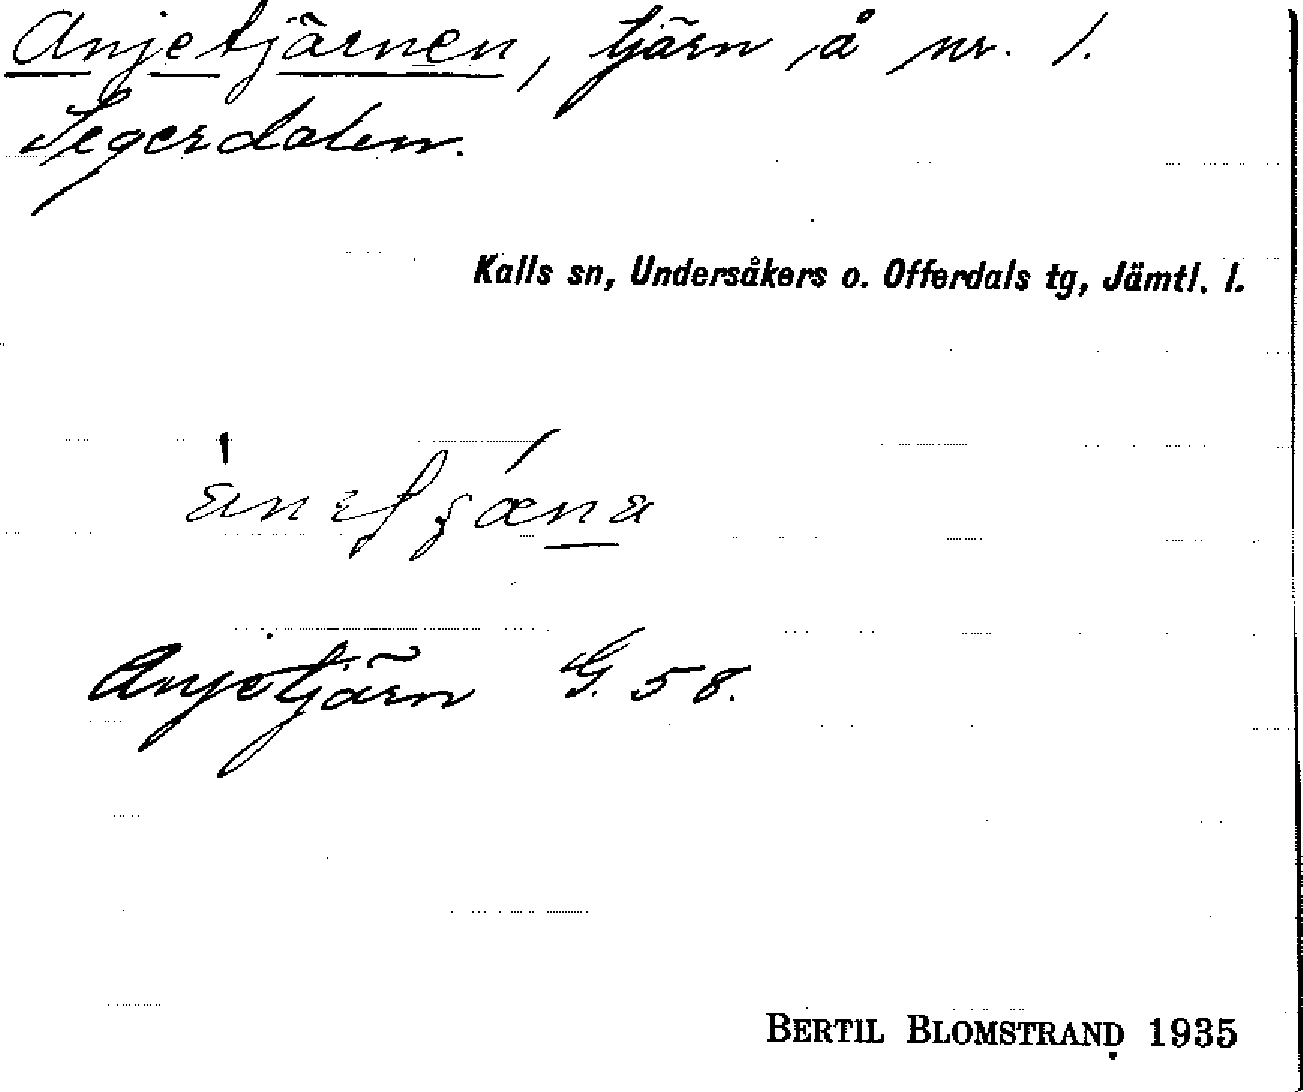 Anjetjärnen, tjärn å nr. 1.
Segerdalen.
Kalls sn, Undersåkers o. Offerdals tg, Jämtl. l.
Anjetjärn G. 58.
BERTIL BLOMSTRAND 1935